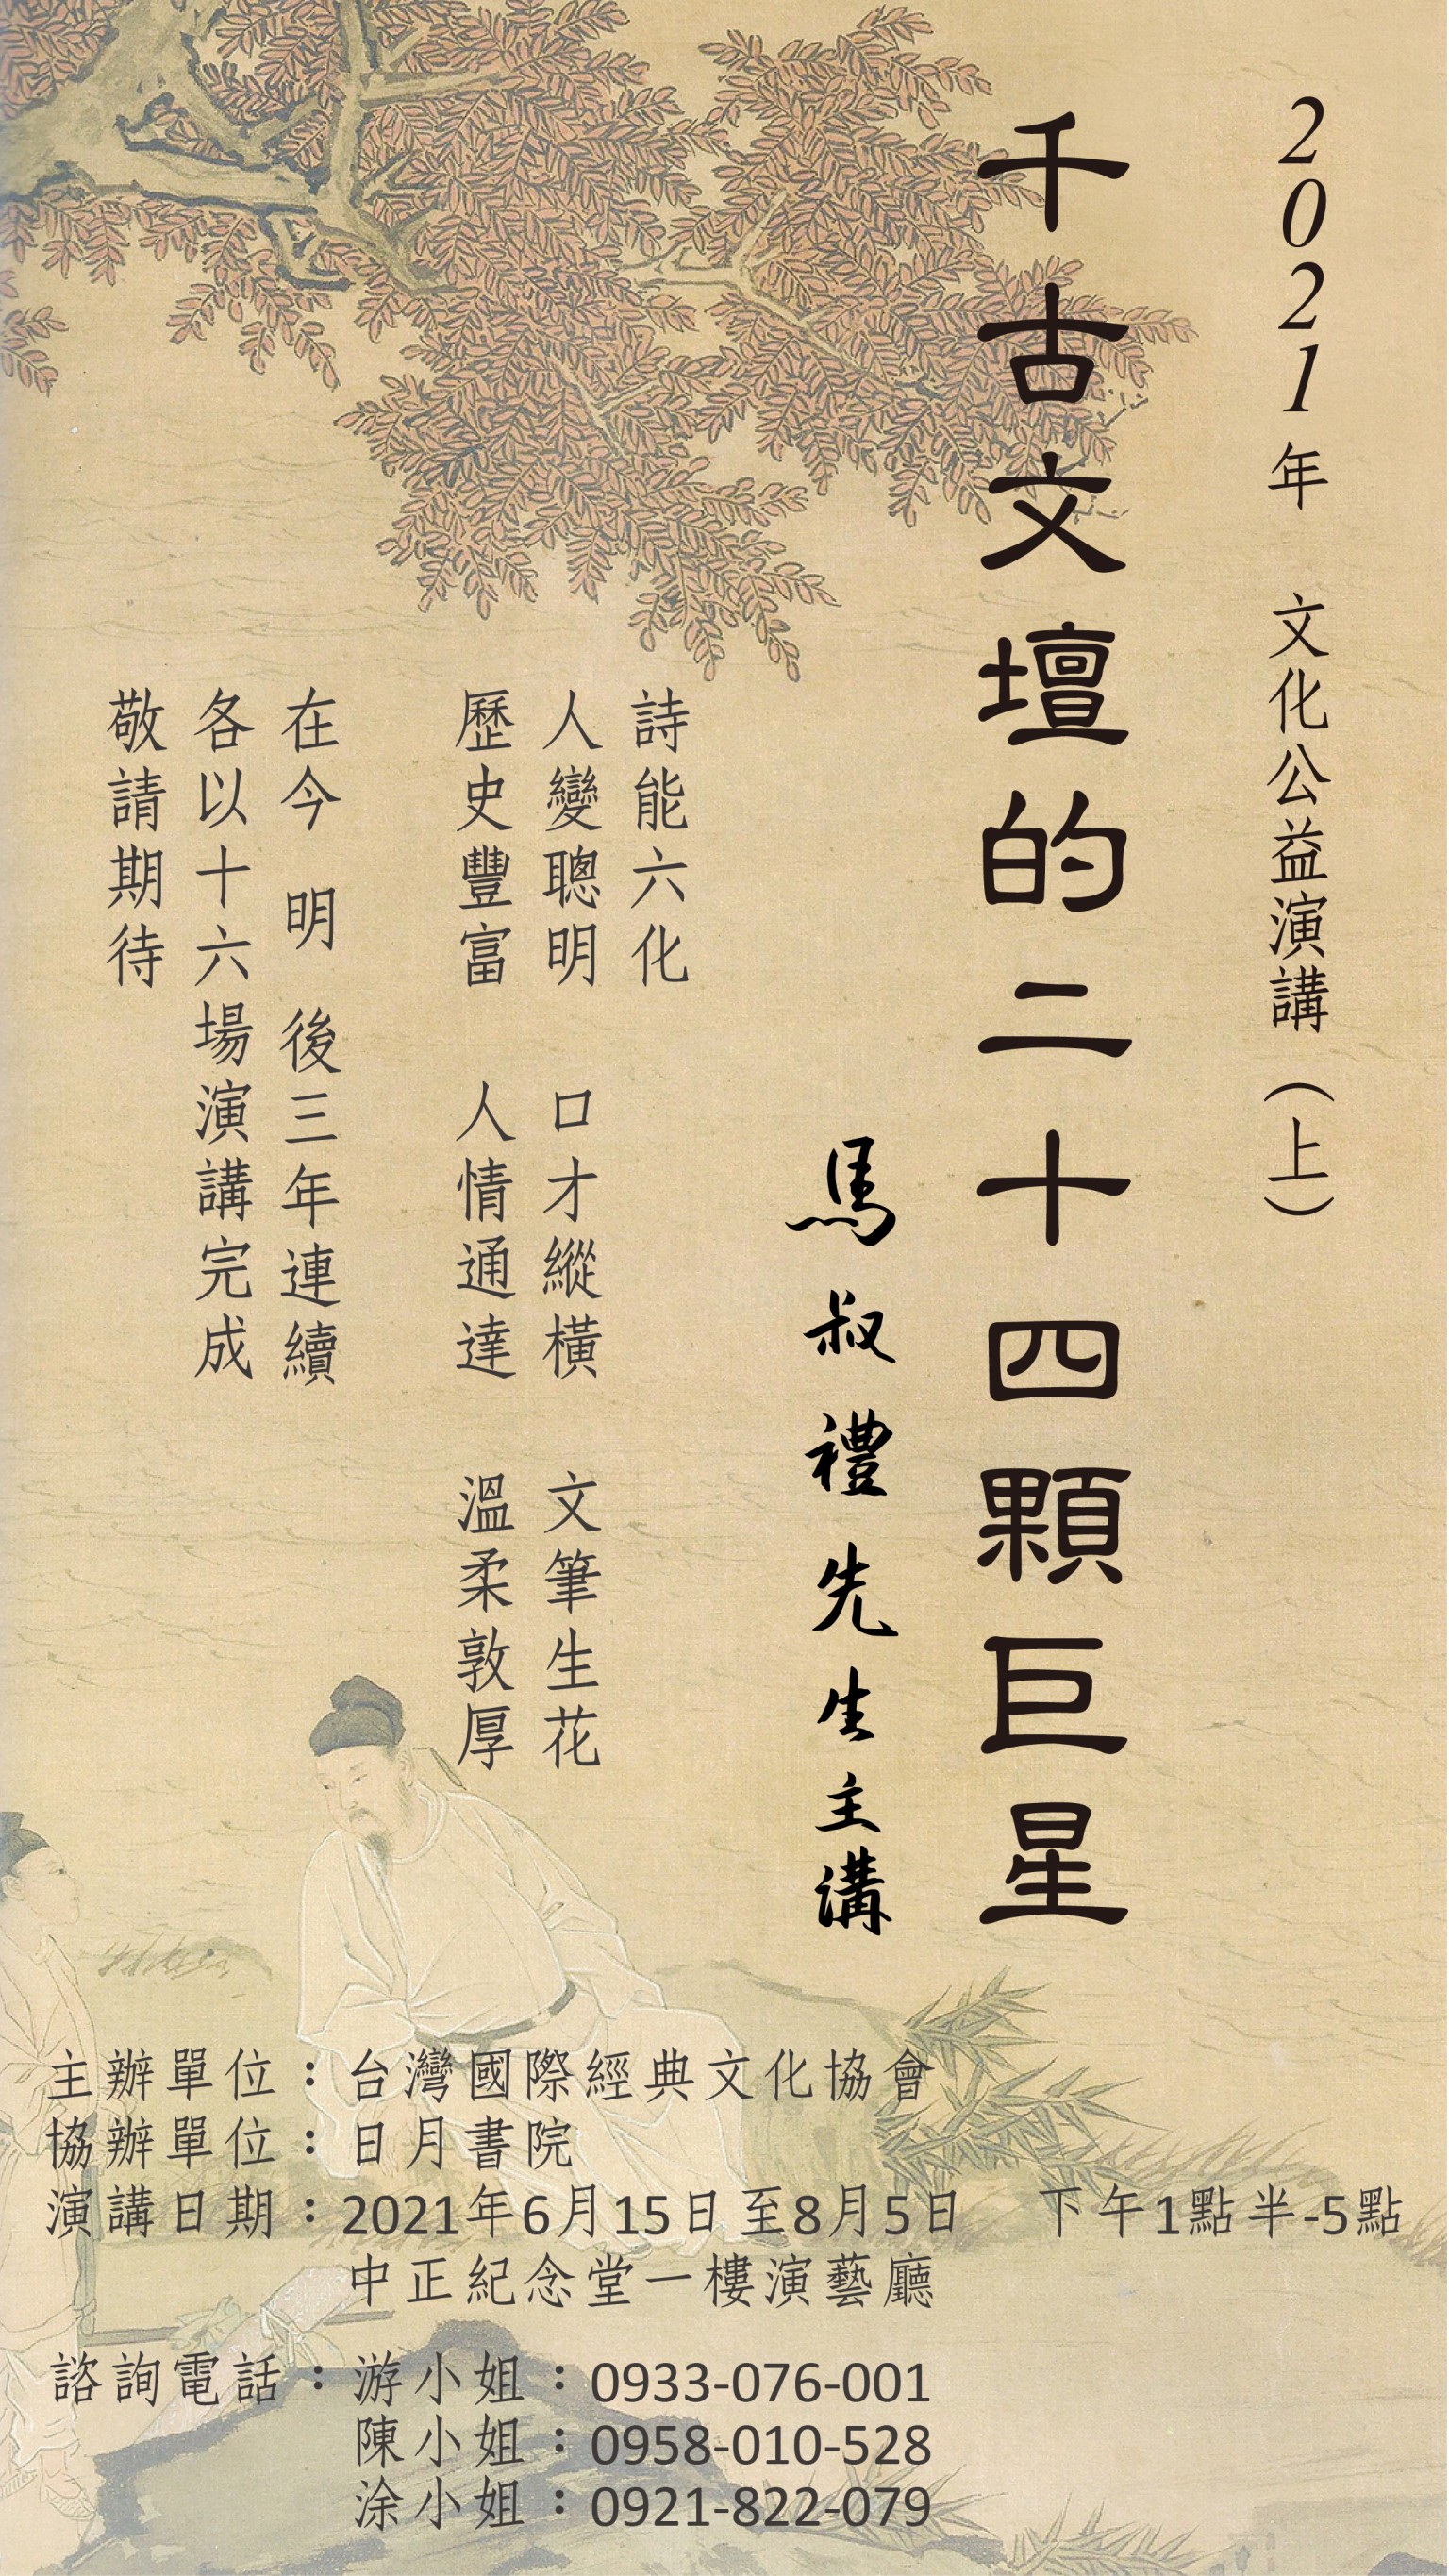 2021年 文化公益演講（上）
千古文壇的二十四顆巨星
馬叔禮先生主講
詩能六化
人變聰明 口才縱橫 文筆生花
歷史豐富 人情通達 溫柔敦厚
在今 明 後三年連續
各以十六場演講完成
敬請期待
主辦單位：台灣國際經典文化協會
協辦單位：日月書院
演講日期：2021年6月15日至8月5日 下午1點半-5點
中正紀念堂一樓演藝廳
諮詢電話：游小姐：0933-076-001
陳小姐：0958-010-528
涂小姐：0921-822-079